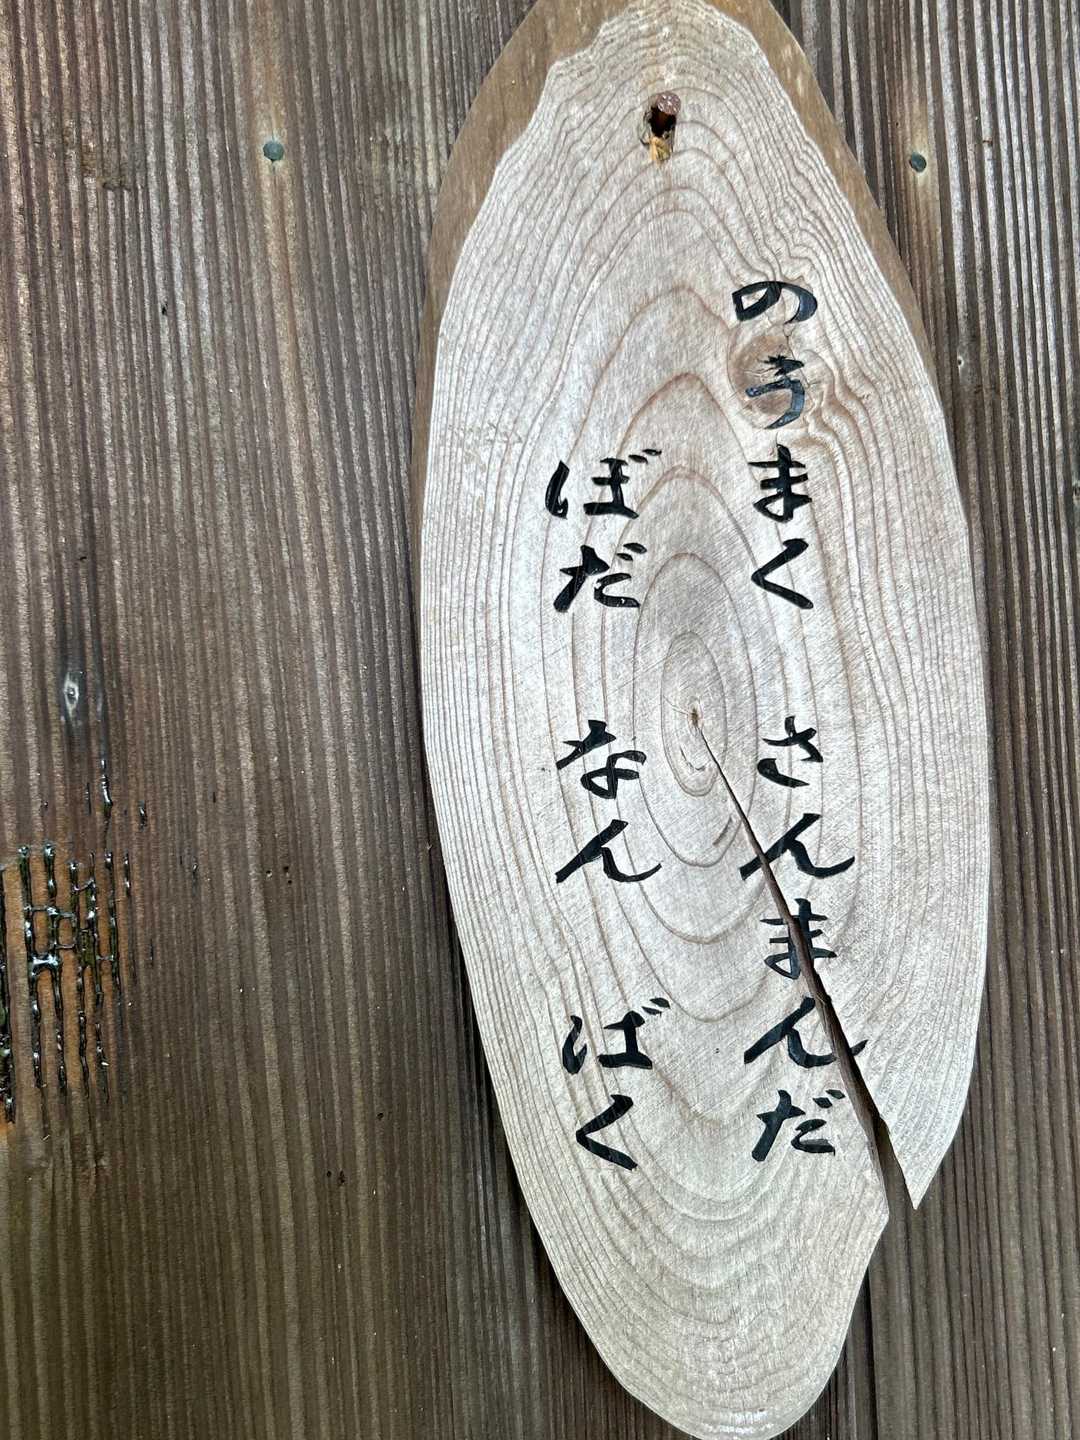 のうまく さんまんだ
ぼだ なん ばく